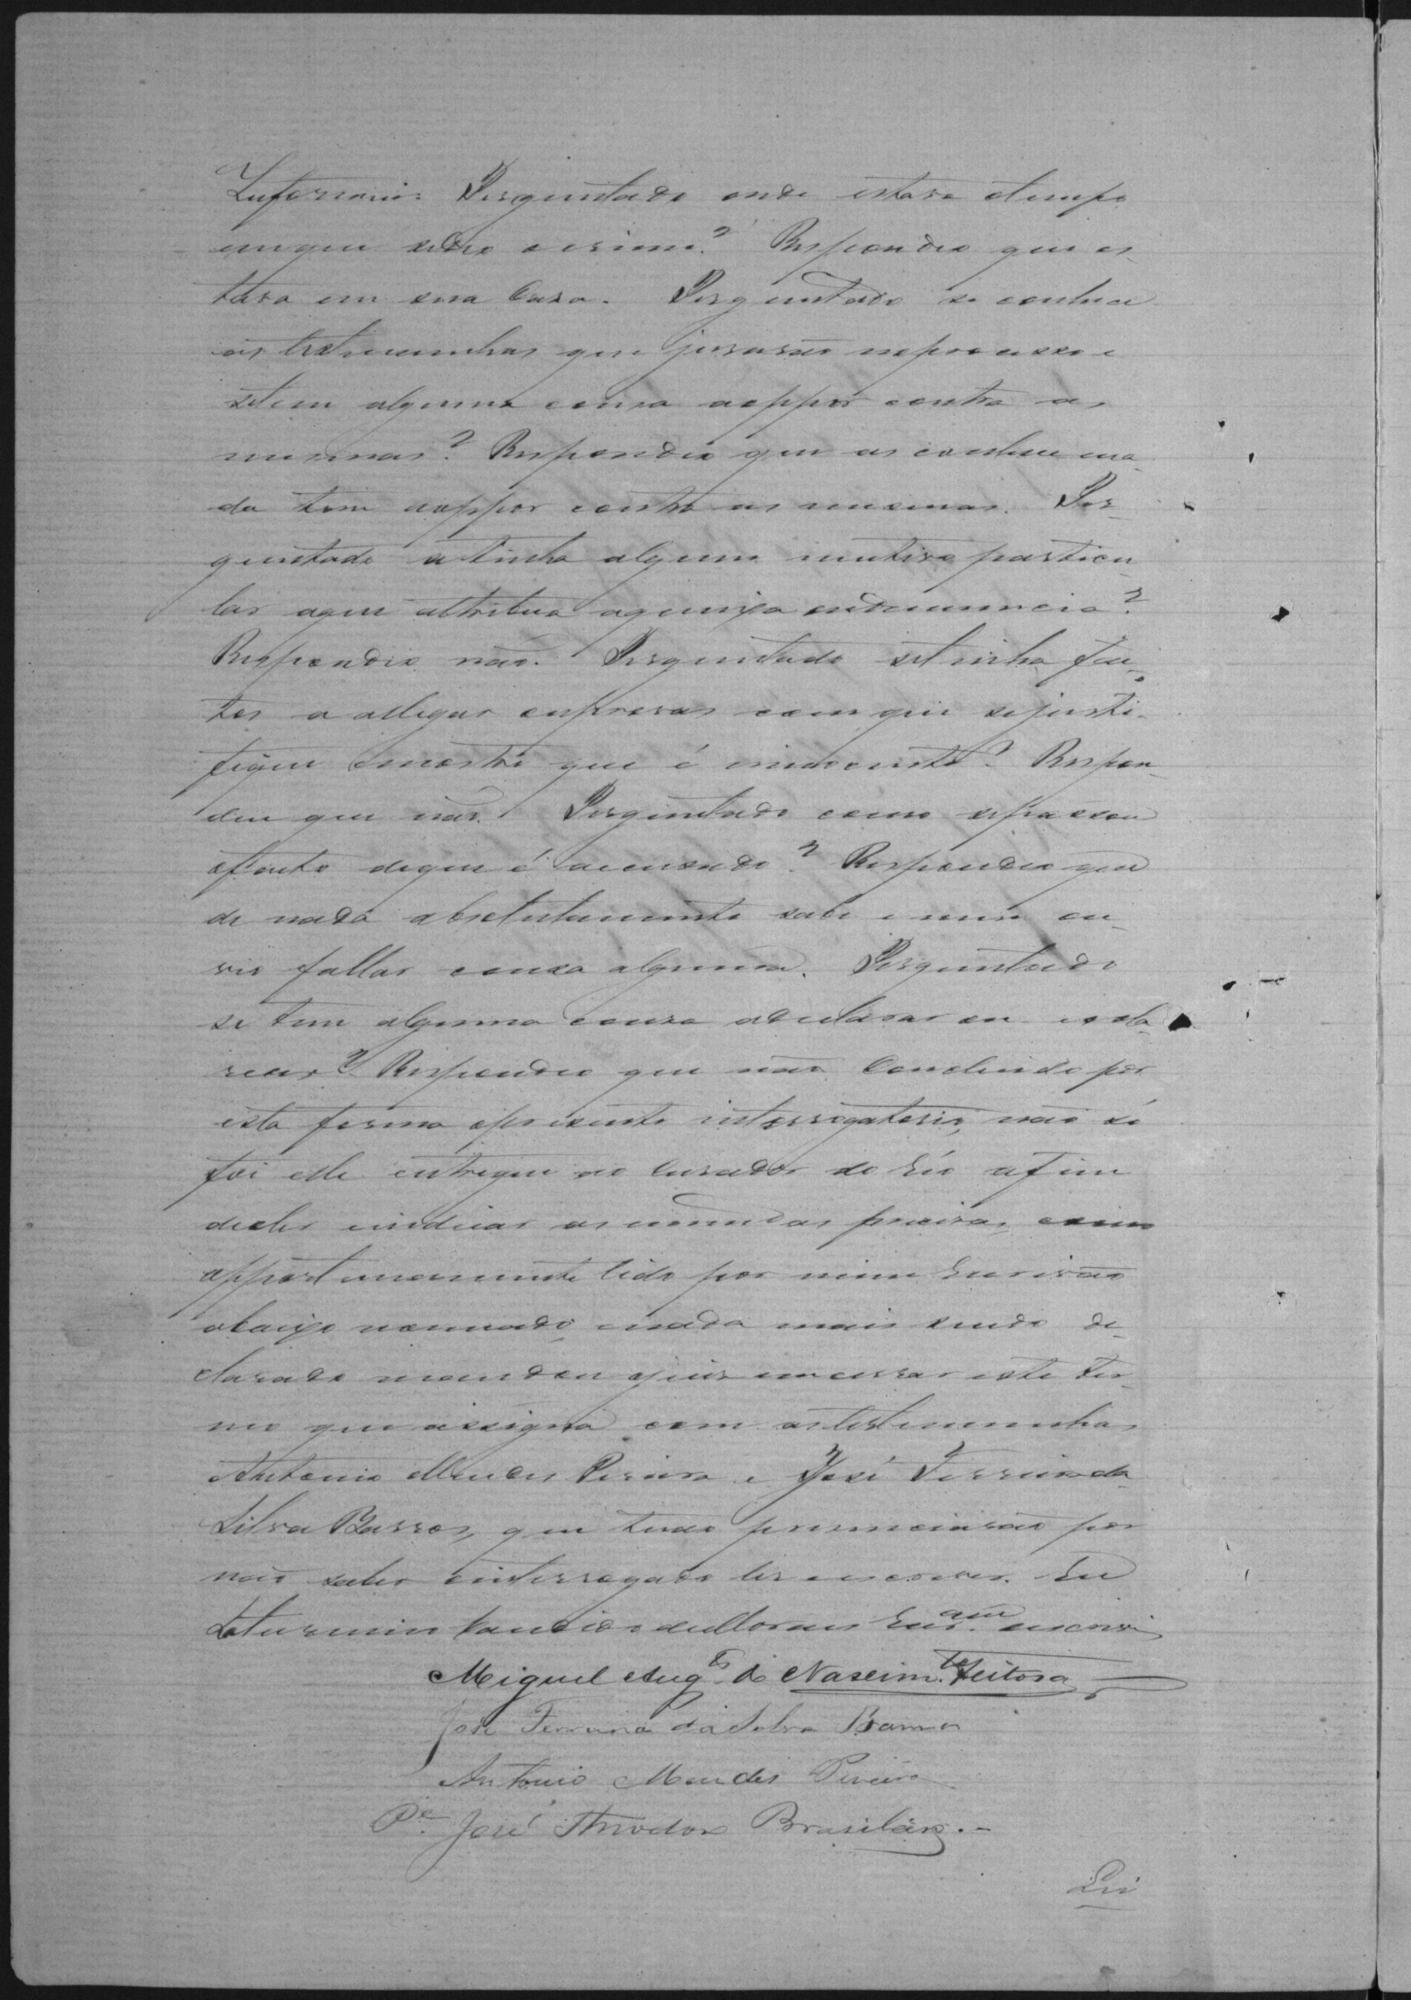 Perguntado onde estava otempo
emque sedeo ocrime? Respondeo que es-
tava em sua Casa. Perguntado se conhece
as testemunhas que jurarão noprocesso e
setem alguma couza aoppor contra as
mesmas? Respondeo que as conhece ena-
da tem aoppor contra as mesmas. Per-
guntado setinha algum mutivo particu-
lar aque attribua aqueixa oudenuncia?
Respondeo não. Perguntado setinha fac-
tos a allegar ouprovas comque sejusti-
fique emostre que é innocente? Respon-
deu que não. Perguntado como sepassou
ofacto deque é accusado? Respondeo que
de nada absolutamente sabe e nem ou-
vio fallar couza alguma. Perguntado
se tem alguma couza adeclarar ou escla-
recer? Respondeo que não. Concluido por
esta forma opresente interrogatorio, não só
foi elle entregue ao Curador do Réo afim
deelle indicar as emendas precizas, como
opportunamente lido por mim Escrivão
abaixo nomeado, enada mais sendo de-
clarado mandou ojuiz encerrar este ter-
mo que assigna com astestemunhas
Antonio Mendes Pereira e José Ferreira da
Silva Barros, que tudo presenciarão por
não saber ointerrogado ler eescrever. Eu
Escr.am escrevi
Miguel Aug.to do Nascim.to Feitosa
José Ferreira da Silva Barros
Antonio Mendes Pereira
P.e José Theodoro Brasileiro.